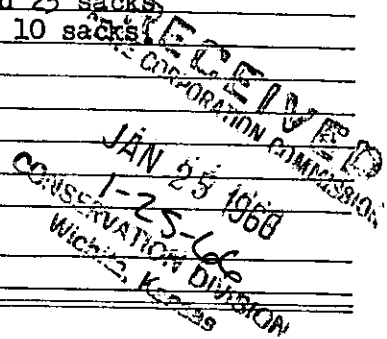 d 25 sacks
10 sacks.
RECEIVED
STATE CORPORATION COMMISSION
JAN 25 1966
1-25-66
CONSERVATION DIVISION
Wichita, Kansas